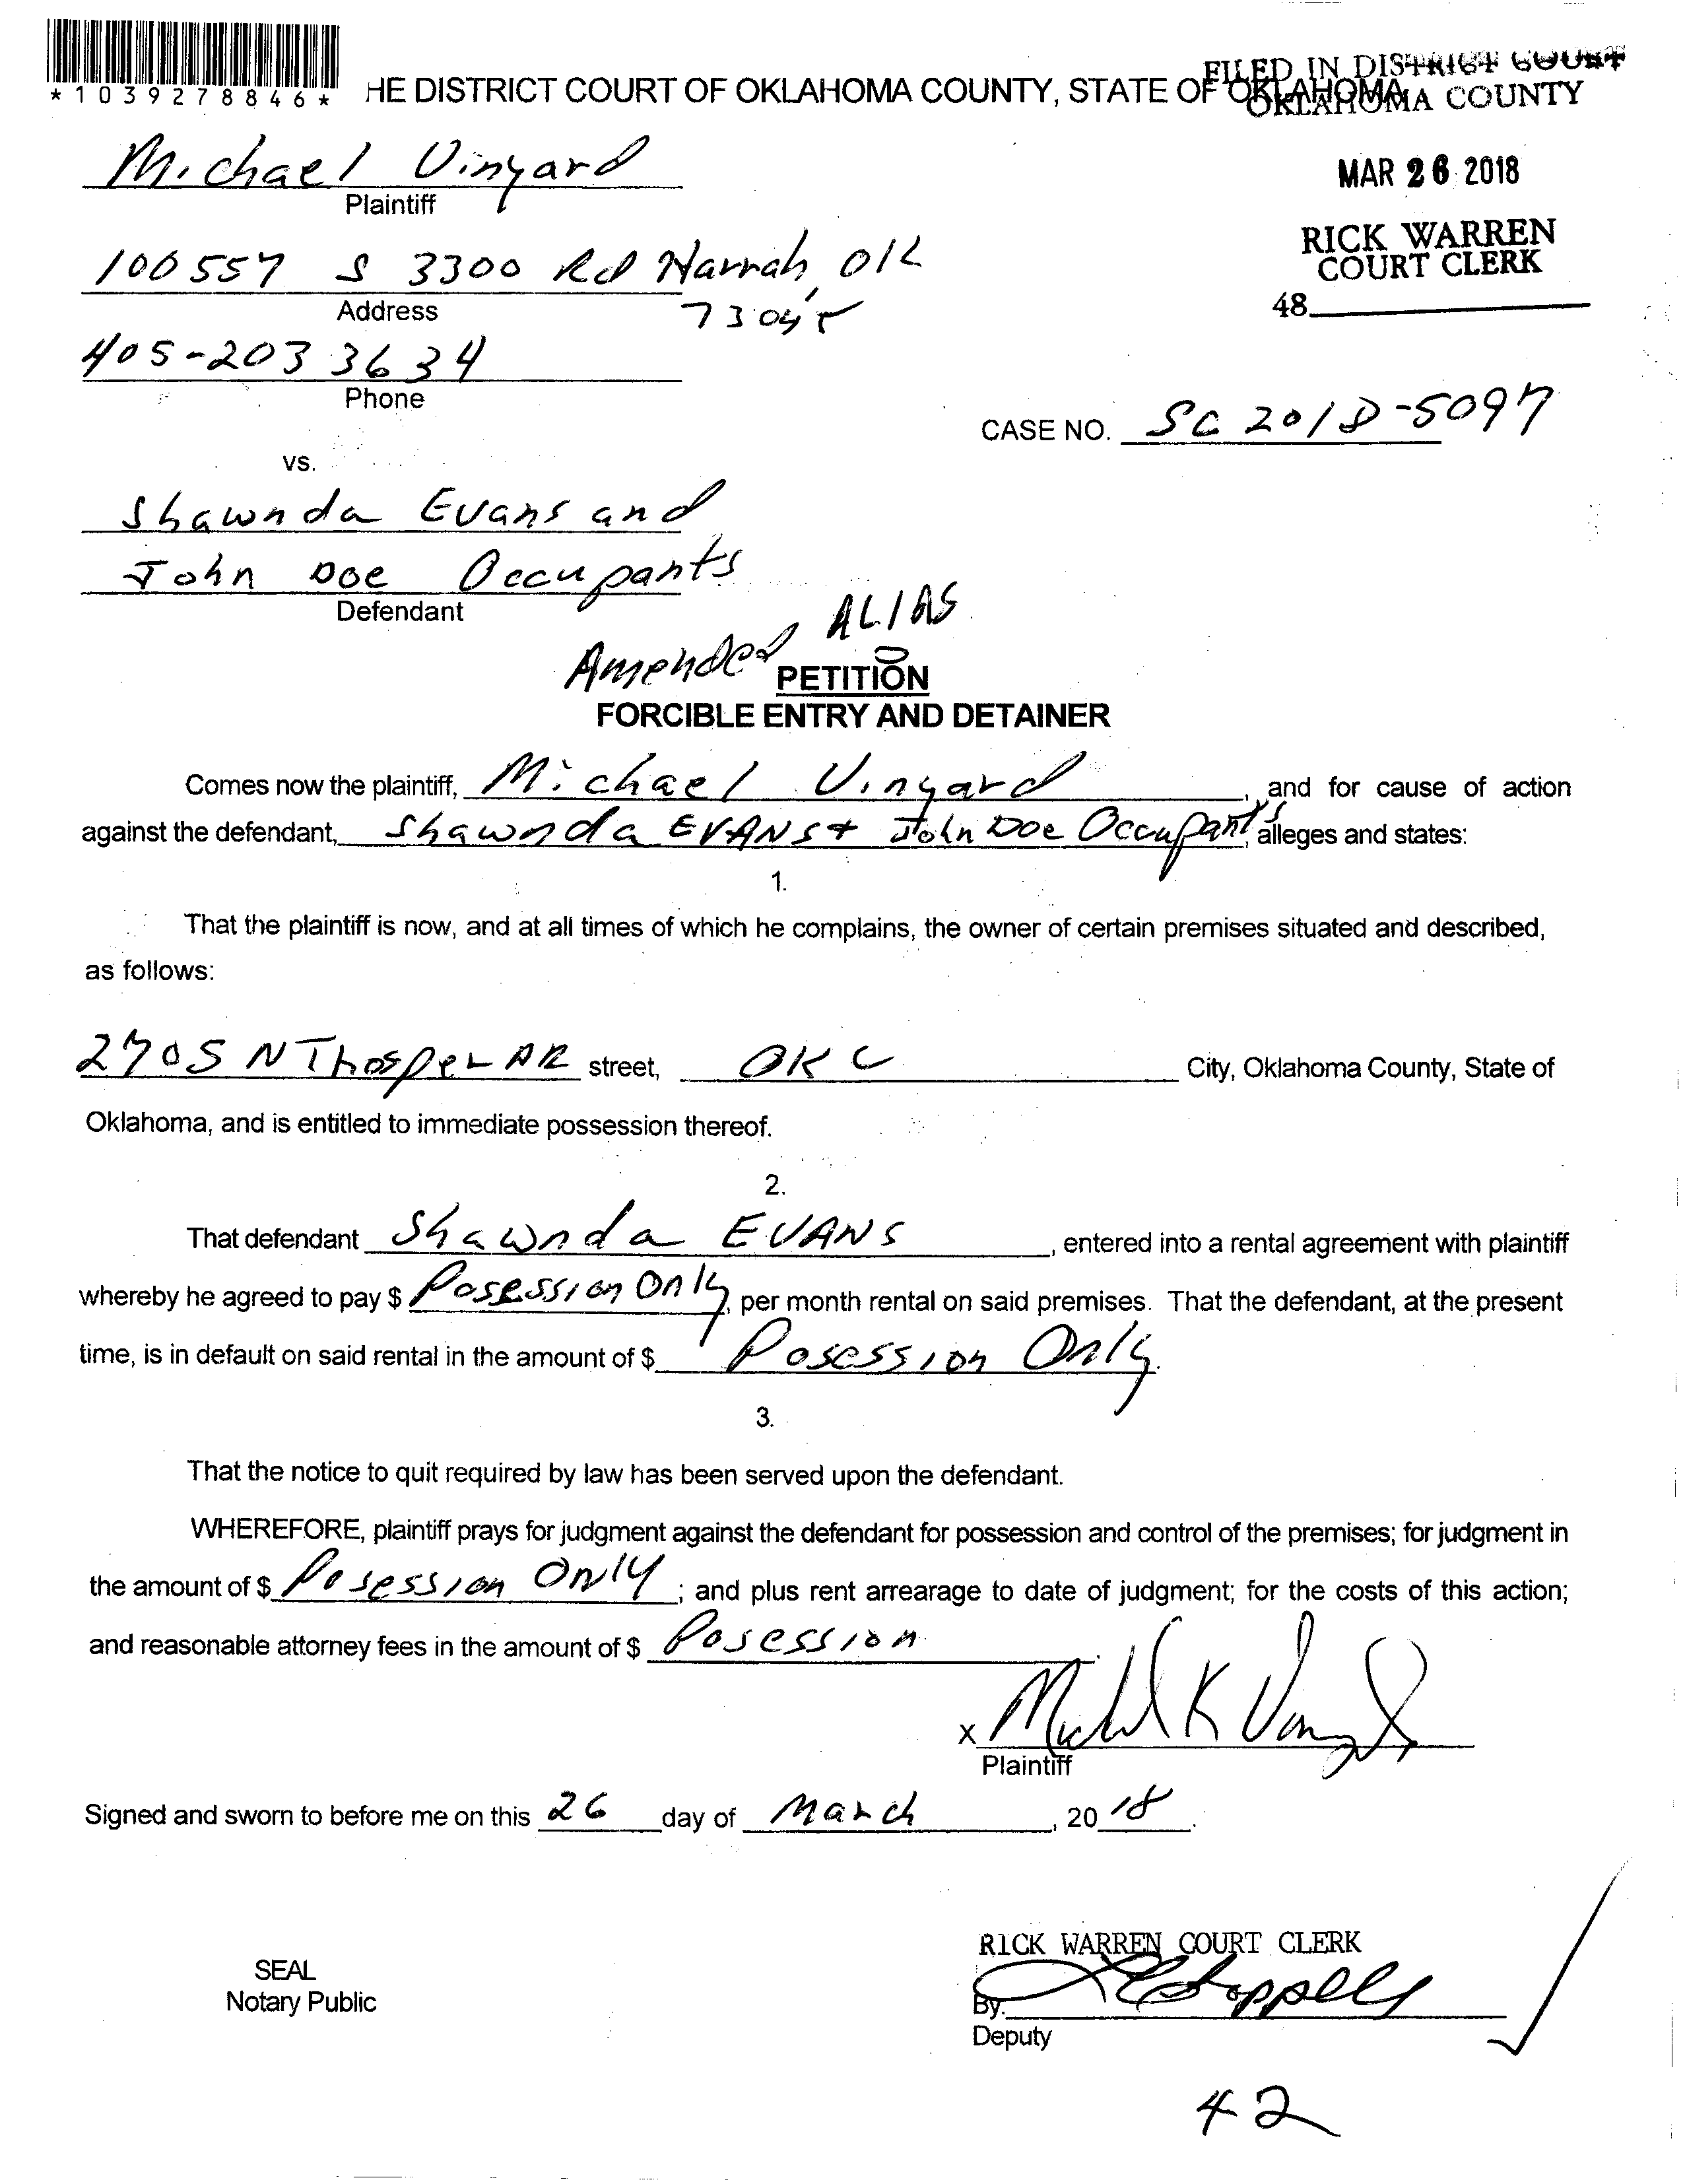 *1039278846*
HE DISTRICT COURT OF OKLAHOMA COUNTY, STATE OF OKLAHOMA
FILED IN DISTRICT COURT
OKLAHOMA COUNTY
Michael Vinyard
Plaintiff
MAR 26 2018
RICK WARREN
COURT CLERK
100557 S 3300 Rd Harrah, OK
Address
73045
48
405-203 3634
Phone
CASE NO. SC 2018-5097
vs.
Shawnda Evans and
John Doe Occupants
Defendant
Amended ALIAS
PETITION
FORCIBLE ENTRY AND DETAINER
Comes now the plaintiff, Michael Vinyard, and for cause of action
against the defendant, Shawnda EVANS + John Doe Occupants, alleges and states:
1.
That the plaintiff is now, and at all times of which he complains, the owner of certain premises situated and described,
as follows:
2705 N street, OKC City, Oklahoma County, State of
Oklahoma, and is entitled to immediate possession thereof.
2.
That defendant Shawnda EVANS, entered into a rental agreement with plaintiff
whereby he agreed to pay $ Posession Only, per month rental on said premises. That the defendant, at the present
time, is in default on said rental in the amount of $ Posession Only.
3.
That the notice to quit required by law has been served upon the defendant.
WHEREFORE, plaintiff prays for judgment against the defendant for possession and control of the premises; for judgment in
the amount of $ Posession Only; and plus rent arrearage to date of judgment; for the costs of this action;
and reasonable attorney fees in the amount of $ Posession.
x Michael K Vinyard
Plaintiff
Signed and sworn to before me on this 26 day of March, 2018.
RICK WARREN COURT CLERK
SEAL
Notary Public
By:
Deputy
42